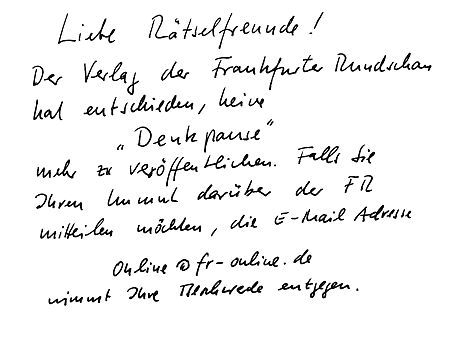 Liebe Rätselfreunde!
Der Verlag der Frankfurter Rundschau
hat entschieden, keine
„Denkpause"
mehr zu veröffentlichen. Falls Sie
Ihren Unmut darüber der FR
mitteilen möchten, die E-Mail Adresse
Online@fr-online.de
nimmt Ihre Beschwerde entgegen.